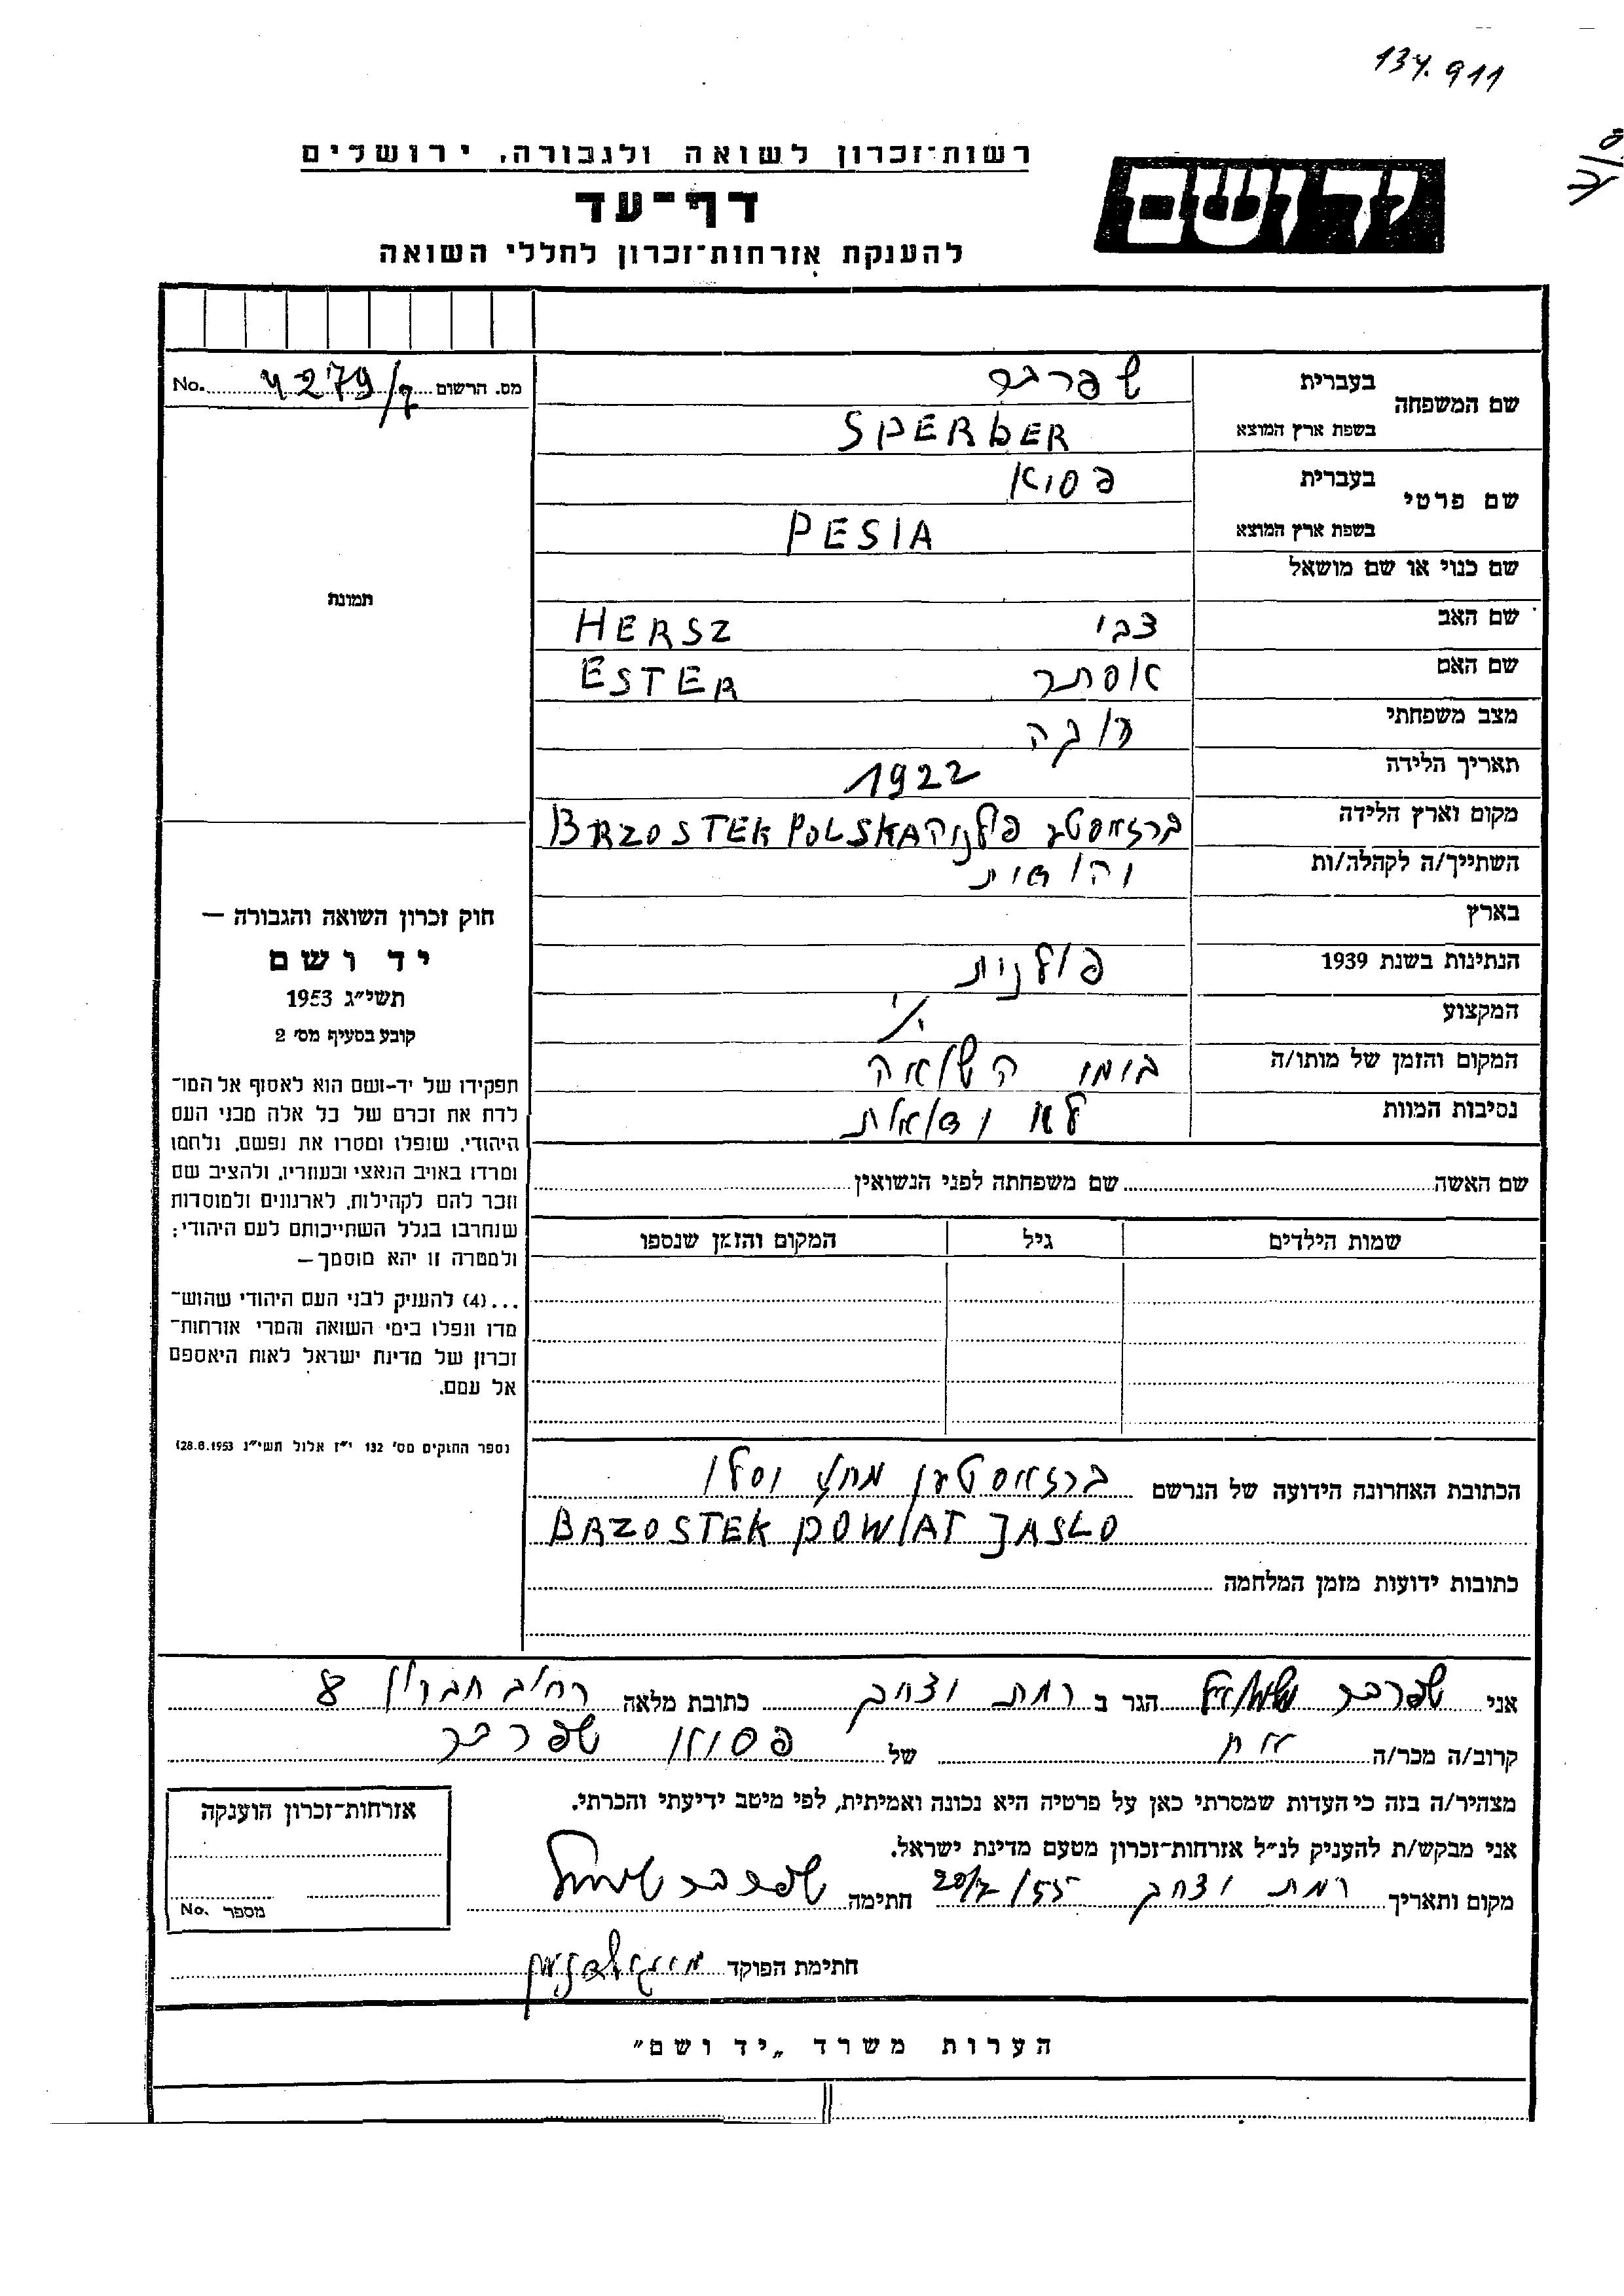 134.911
רשות-זכרון לשואה ולגבורה, ירושלים
דף-עד
להענקת אזרחות-זכרון לחללי השואה
יד ושם
מס. הרשום 4279/ No.
שם המשפחה
בעברית שפרבר
בשפת ארץ המוצא SPERbER
שם פרטי
בעברית פסיא
בשפת ארץ המוצא PESIA
שם כנוי או שם מושאל
שם האב צבי HERSZ
שם האם אסתר ESTER
מצב משפחתי
תאריך הלידה 1922
מקום וארץ הלידה פולניה BRZOSTEK POLSKA
השתייך/ה לקהלה/ות יהודית
בארץ
הנתינות בשנת 1939 פולנית
המקצוע
המקום והזמן של מותו/ה בזמן השואה
נסיבות המוות לא ודאות
תמונה
חוק זכרון השואה והגבורה —
יד ושם
תשי״ג 1953
קובע בסעיף מס׳ 2
תפקידו של יד-ושם הוא לאסוף אל המו־
לדת את זכרם של כל אלה מבני העם
היהודי, שנפלו ומסרו את נפשם, נלחמו
ומרדו באויב הנאצי ובעוזריו, ולהציב שם
וזכר להם לקהילות, לארגונים ולמוסדות
שנחרבו בגלל השתייכותם לעם היהודי;
ולמטרה זו יהא מוסמך—
...(4) להעניק לבני העם היהודי שהוש־
מדו ונפלו בימי השואה והמרי אזרחות־
זכרון של מדינת ישראל לאות היאספם
אל עמם.
(ספר החוקים מס׳ 132 י״ז אלול תשי״ג 28.8.1953)
שם האשה שם משפחתה לפני הנשואין
שמות הילדים גיל המקום והזמן שנספו
הכתובת האחרונה הידועה של הנרשם מחוז יסלו
BRZOSTEK POWIAT JASLO
כתובות ידועות מזמן המלחמה
אני שפרבר שמואל הגר ב רמת יצחק כתובת מלאה רחוב חברון 8
קרוב/ה מכר/ה אח של פסיא שפרבר
מצהיר/ה בזה כי העדות שמסרתי כאן על פרטיה היא נכונה ואמיתית, לפי מיטב ידיעתי והכרתי.
אני מבקש/ת להעניק לנ״ל אזרחות־זכרון מטעם מדינת ישראל.
מקום ותאריך רמת יצחק 20/7/55 חתימה שפרבר שמואל
אזרחות־זכרון הוענקה
מספר No.
חתימת הפוקד
הערות משרד „יד ושם״